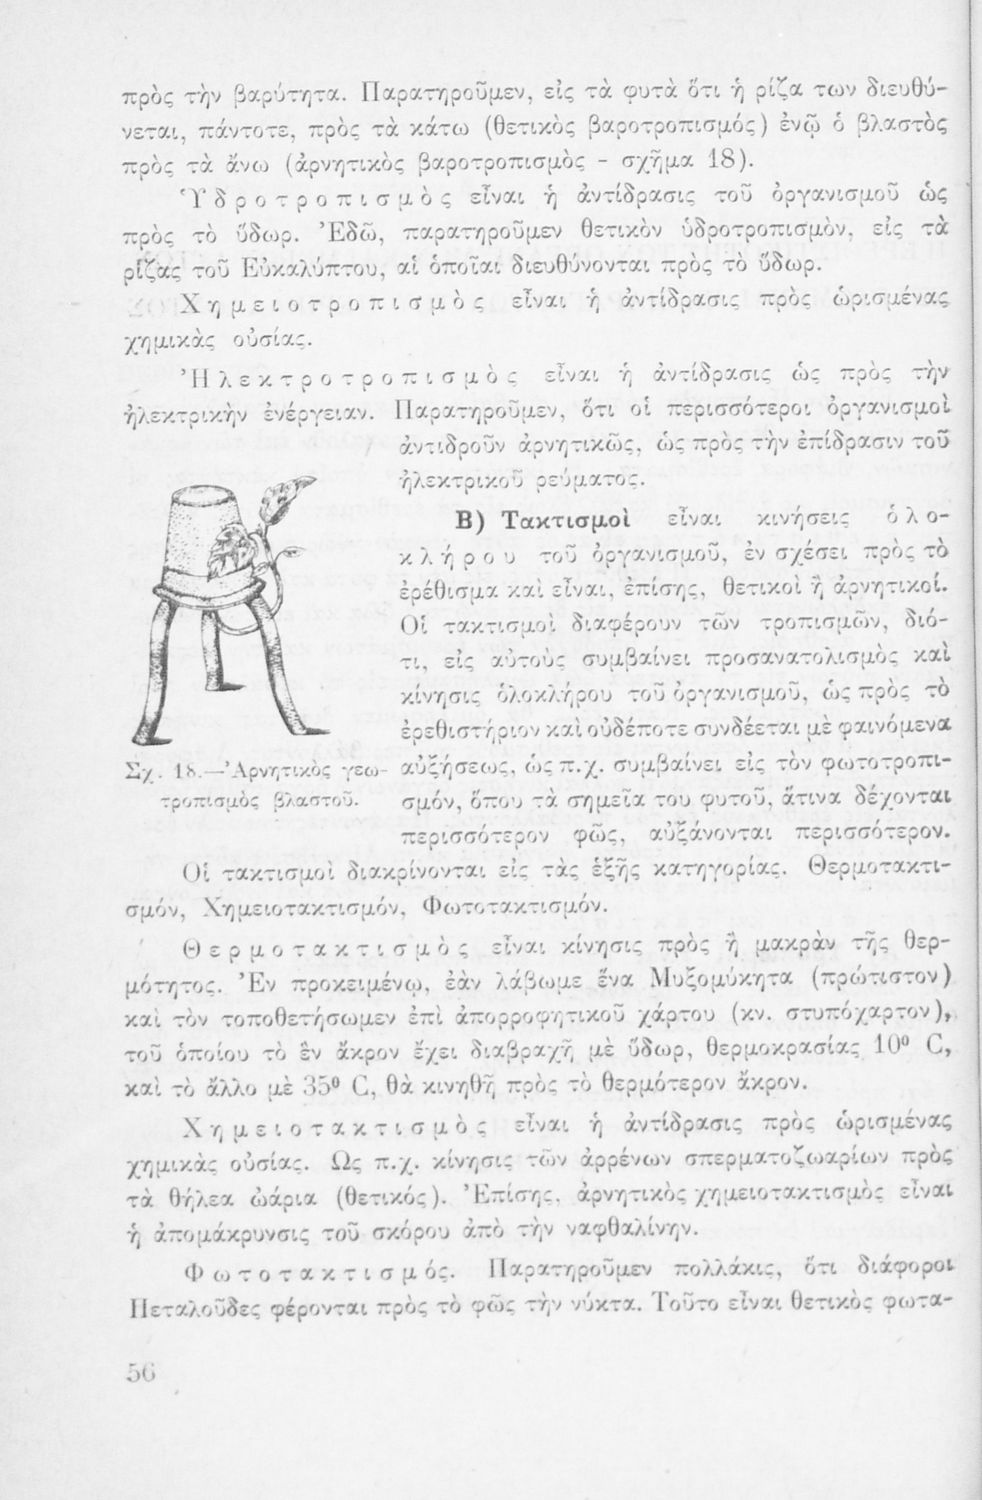 πρὸς τὴν βαρύτητα. Παρατηροῦμεν, εἰς τὰ φυτὰ ὅτι ἡ ρίζα των διευθύ-
νεται, πάντοτε, πρὸς τὰ κάτω (θετικὸς βαροτροπισμός) ἐνῷ ὁ βλαστὸς
πρὸς τὰ ἄνω (ἀρνητικὸς βαροτροπισμὸς - σχῆμα 18).
Ὑδροτροπισμὸς εἶναι ἡ ἀντίδρασις τοῦ ὀργανισμοῦ ὡς
πρὸς τὸ ὕδωρ. Ἐδῶ, παρατηροῦμεν θετικὸν ὑδροτροπισμὸν, εἰς τὰ
ρίζας τοῦ Εὐκαλύπτου, αἱ ὁποῖαι διευθύνονται πρὸς τὸ ὕδωρ.
Χημειοτροπισμὸς εἶναι ἡ ἀντίδρασις πρὸς ὡρισμένας
χημικὰς οὐσίας.
Ἠλεκτροτροπισμὸς εἶναι ἡ ἀντίδρασις ὡς πρὸς τὴν
ἠλεκτρικὴν ἐνέργειαν. Παρατηροῦμεν, ὅτι οἱ περισσότεροι ὀργανισμοὶ
ἀντιδροῦν ἀρνητικῶς, ὡς πρὸς τὴν ἐπίδρασιν τοῦ
ἠλεκτρικοῦ ρεύματος.
Β) Τακτισμοὶ εἶναι κινήσεις ὁλο-
κλήρου τοῦ ὀργανισμοῦ, ἐν σχέσει πρὸς τὸ
ἐρέθισμα καὶ εἶναι, ἐπίσης, θετικοὶ ἢ ἀρνητικοί.
Οἱ τακτισμοὶ διαφέρουν τῶν τροπισμῶν, διό-
τι, εἰς αὐτοὺς συμβαίνει προσανατολισμὸς καὶ
κίνησις ὁλοκλήρου τοῦ ὀργανισμοῦ, ὡς πρὸς τὸ
ἐρεθιστήριον καὶ οὐδέποτε συνδέεται μὲ φαινόμενα
αὐξήσεως, ὡς π.χ. συμβαίνει εἰς τὸν φωτοτροπι-
σμόν, ὅπου τὰ σημεῖα του φυτοῦ, ἅτινα δέχονται
περισσότερον φῶς, αὐξάνονται περισσότερον.
Σχ. 18.—Ἀρνητικὸς γεω-
τροπισμὸς βλαστοῦ.
Οἱ τακτισμοὶ διακρίνονται εἰς τὰς ἑξῆς κατηγορίας. Θερμοτακτι-
σμόν, Χημειοτακτισμόν, Φωτοτακτισμόν.
Θερμοτακτισμὸς εἶναι κίνησις πρὸς ἢ μακρὰν τῆς θερ-
μότητος. Ἐν προκειμένῳ, ἐὰν λάβωμε ἕνα Μυξομύκητα (πρώτιστον)
καὶ τὸν τοποθετήσωμεν ἐπὶ ἀπορροφητικοῦ χάρτου (κν. στυπόχαρτον),
τοῦ ὁποίου τὸ ἓν ἄκρον ἔχει διαβραχῆ μὲ ὕδωρ, θερμοκρασίας 10⁰ C,
καὶ τὸ ἄλλο μὲ 35⁰ C, θὰ κινηθῆ πρὸς τὸ θερμότερον ἄκρον.
Χημειοτακτισμὸς εἶναι ἡ ἀντίδρασις πρὸς ὡρισμένας
χημικὰς οὐσίας. Ως π.χ. κίνησις τῶν ἀρρένων σπερματοζωαρίων πρὸς
τὰ θήλεα ὠάρια (θετικός). Ἐπίσης, ἀρνητικὸς χημειοτακτισμὸς εἶναι
ἡ ἀπομάκρυνσις τοῦ σκόρου ἀπὸ τὴν ναφθαλίνην.
Φωτοτακτισμός. Παρατηροῦμεν πολλάκις, ὅτι διάφοροι
Πεταλοῦδες φέρονται πρὸς τὸ φῶς τὴν νύκτα. Τοῦτο εἶναι θετικὸς φωτα-
56